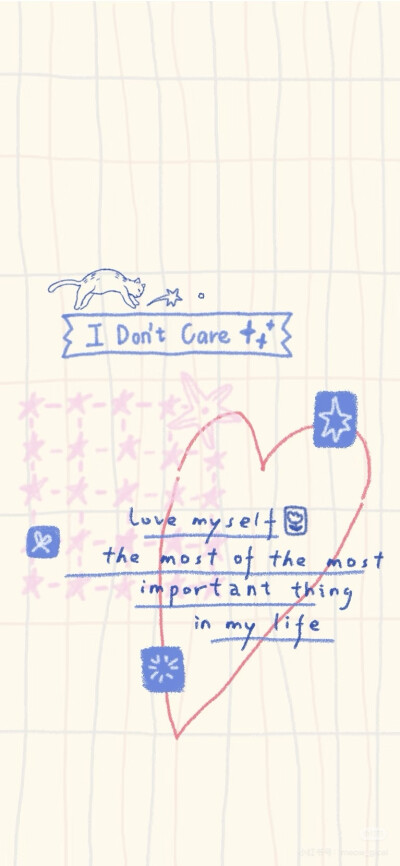 I Don't Care
love myself
the most of the most
important thing
in my life